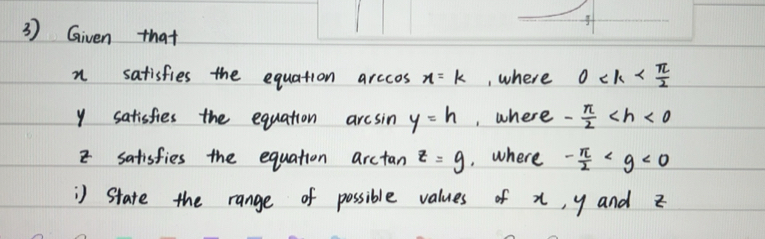 3) Given that
x satisfies the equation arccos x = k , where 0 < k < π/2
y satisfies the equation arcsin y = h , where - π/2 < h < 0
z satisfies the equation arctan z = g, where - π/2 < g < 0
i) State the range of possible values of x , y and z